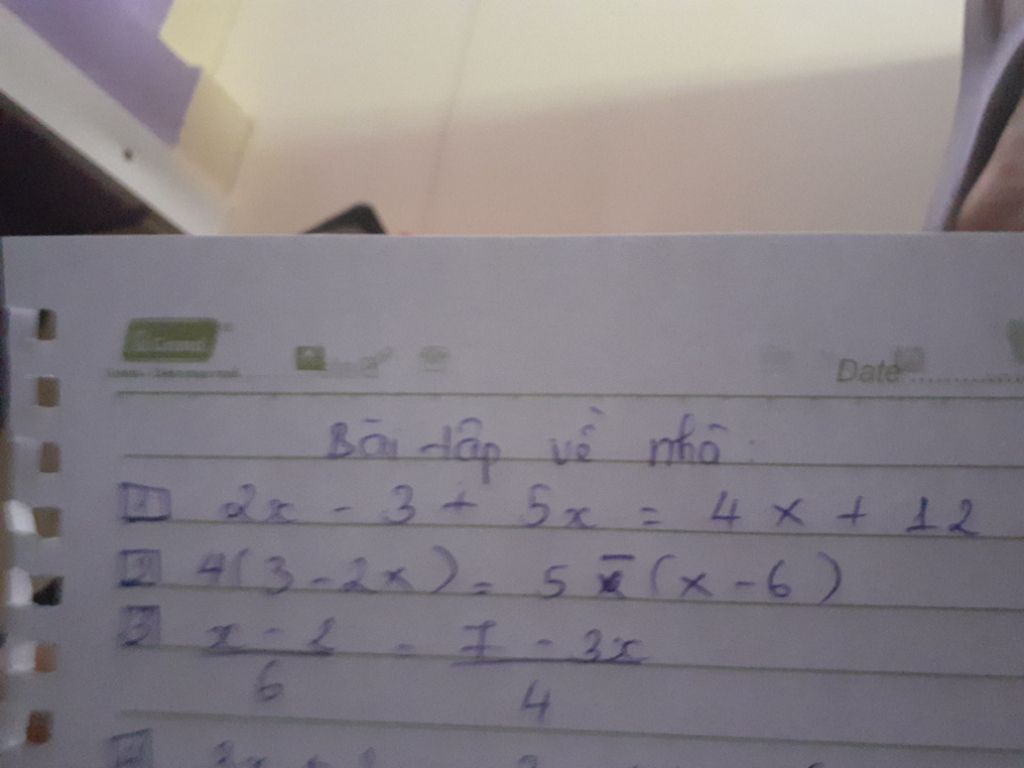 Date
Bài tập về nhà:
1 2x - 3 + 5x = 4x + 12
2 4(3 - 2x) = 5 - (x - 6)
3 x - 2 / 6 = 7 - 3x / 4
4